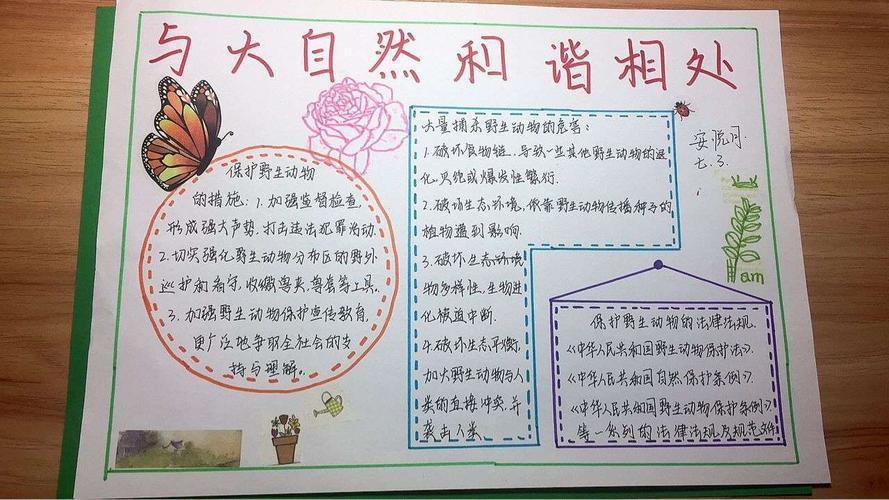 与大自然和谐相处
保护野生动物
的措施：1.加强监督检查，
形成强大声势，打击违法犯罪活动.
2.切实强化野生动物分布区的野外
巡护和看守，收缴兽夹、兽套等工具。
3.加强野生动物保护宣传教育，
更广泛地争取全社会的支
持与理解。
大量捕杀野生动物的危害：
1.破坏食物链，导致一些其他野生动物的退
化、灭绝或爆发性繁衍.
2.破坏生态环境，依靠野生动物传播种子的
植物遭到影响.
3.破坏生态环境
物多样性，生物进
化被迫中断.
4.破坏生态平衡，
加大野生动物与人
类的直接冲突，并
袭击人类
安悦月
七.3
am
保护野生动物的法律法规.
《中华人民共和国野生动物保护法》.
《中华人民共和国自然保护条例》.
《中华人民共和国野生动物保护条例》.
等一系列的法律法规及规范文件